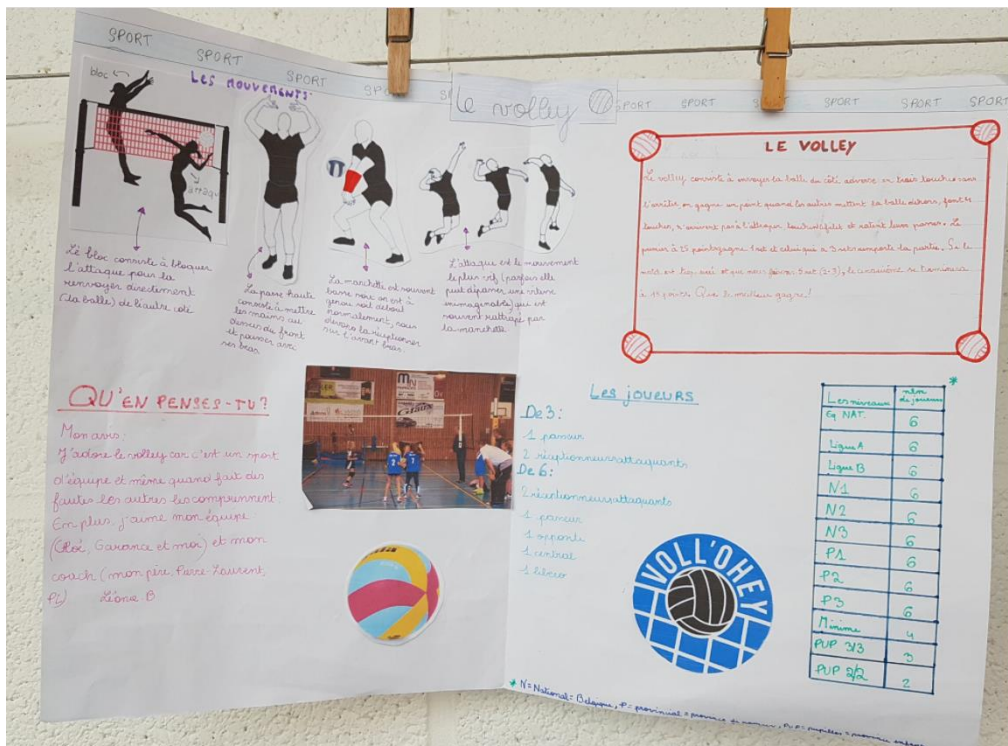 SPORT
SPORT
SPORT
SPORT
SPORT
SPORT
SPORT
SPORT
SPORT
le volley
LES MOUVEMENTS:
bloc
attaque
Le bloc consiste à bloquer
l'attaque pour la
renvoyer directement
(la balle) de l'autre côté
La passe haute
consiste à mettre
les mains au
dessus du front
et pousser avec
ses bras.
La manchette est souvent
basse
on est à
genou soit debout
normalement, nous
devons la réceptionner
sur l'avant bras.
L'attaque est le mouvement
le plus vif (parfois elle
peut dépasser une vitesse
inimaginable) qui est
souvent rattrapé par
la manchette
LE VOLLEY
Le volley consiste à envoyer la balle du côté adverse en trois touches sans
l'arrêter on gagne un point quand les autres mettent la balle dehors, font 4
touches, n'arrivent pas à l'attraper touche le filet et ratent leur passes. Le
premier à 25 points gagne 1 set et celui qui a 3 sets remporte la partie. Si le
match est trop
et que nous faisons 5 set (2-3), le cinquième se terminera
à 15 points. Que le meilleur gagne!
QU'EN PENSES-TU?
Mon avis:
J'adore le volley car c'est un sport
d'équipe et même quand fait des
fautes les autres les comprennent.
En plus, j'aime mon équipe
(Cloé, Garance et moi) et mon
coach (mon père, Pierre-Laurent,
PL). Léonie B
Les JOUEURS
De 3:
1 passeur
2 réceptionneurs attaquants
De 6:
2 réceptionneurs attaquants
1 passeur
1 opposite
1 central
1 libero
VOLL'OHEY
Les niveaux
nbre de joueurs
*
Eq NAT. 6
Ligue A 6
Ligue B 6
N1 6
N2 6
N3 6
P1 6
P2 6
P3 6
Minime 4
PUP 3/3 3
PUP 2/2 2
* N = National = Belgique, P = provincial = province de namur, PUP = pupilles = province